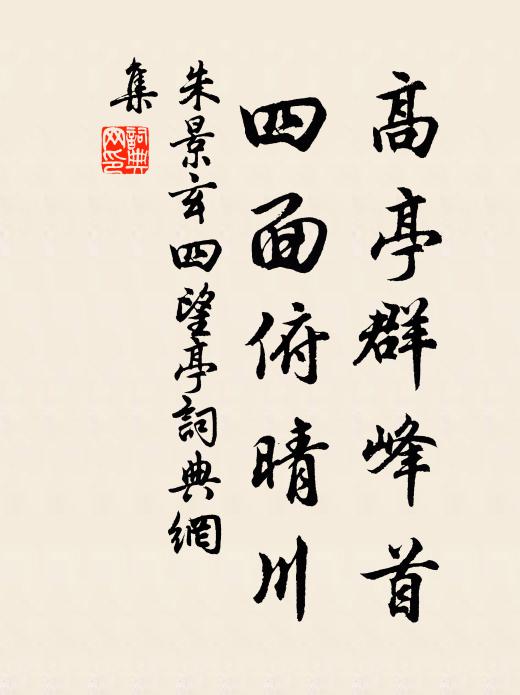 高亭群峰首
四面俯晴川
朱景玄四望亭詞典網
集
詞典網印